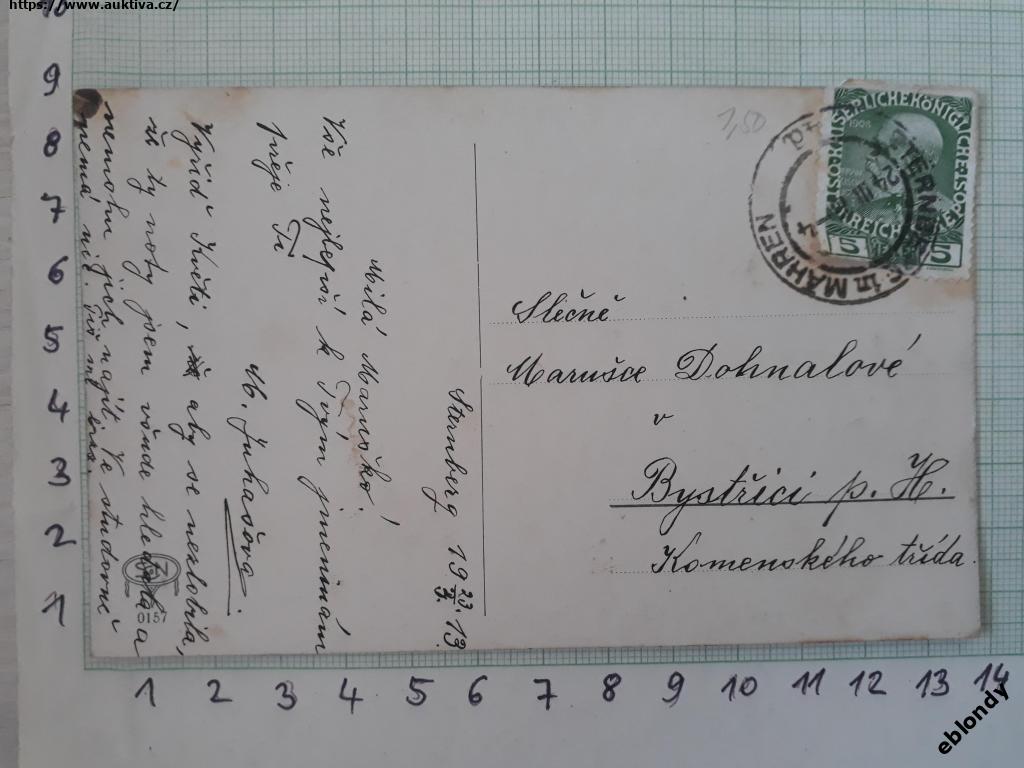 https://www.auktiva.cz/
10
9
8
7
6
5
4
3
2
1
1 2 3 4 5 6 7 8 9 10 11 12 13 14
1,50
KAISERLICHE KÖNIGLICHE
1908
5 5
STERNBERG in MÄHREN
24 III
Slečně
Marušce Dohnalové
v
Bystřici p. H.
Komenského třída.
Sternberg 19 23/3. 13.
Milá Maruško!
Vše nejlepší k Tvým jmeninám
přeje Ti
M. Juhašova.
Vyřiď Květi, aby se nezlobila,
že ty noty jsem všude hledala a
nemohu jich najít. Ve studovně
nemá nic.
0157
eblondy